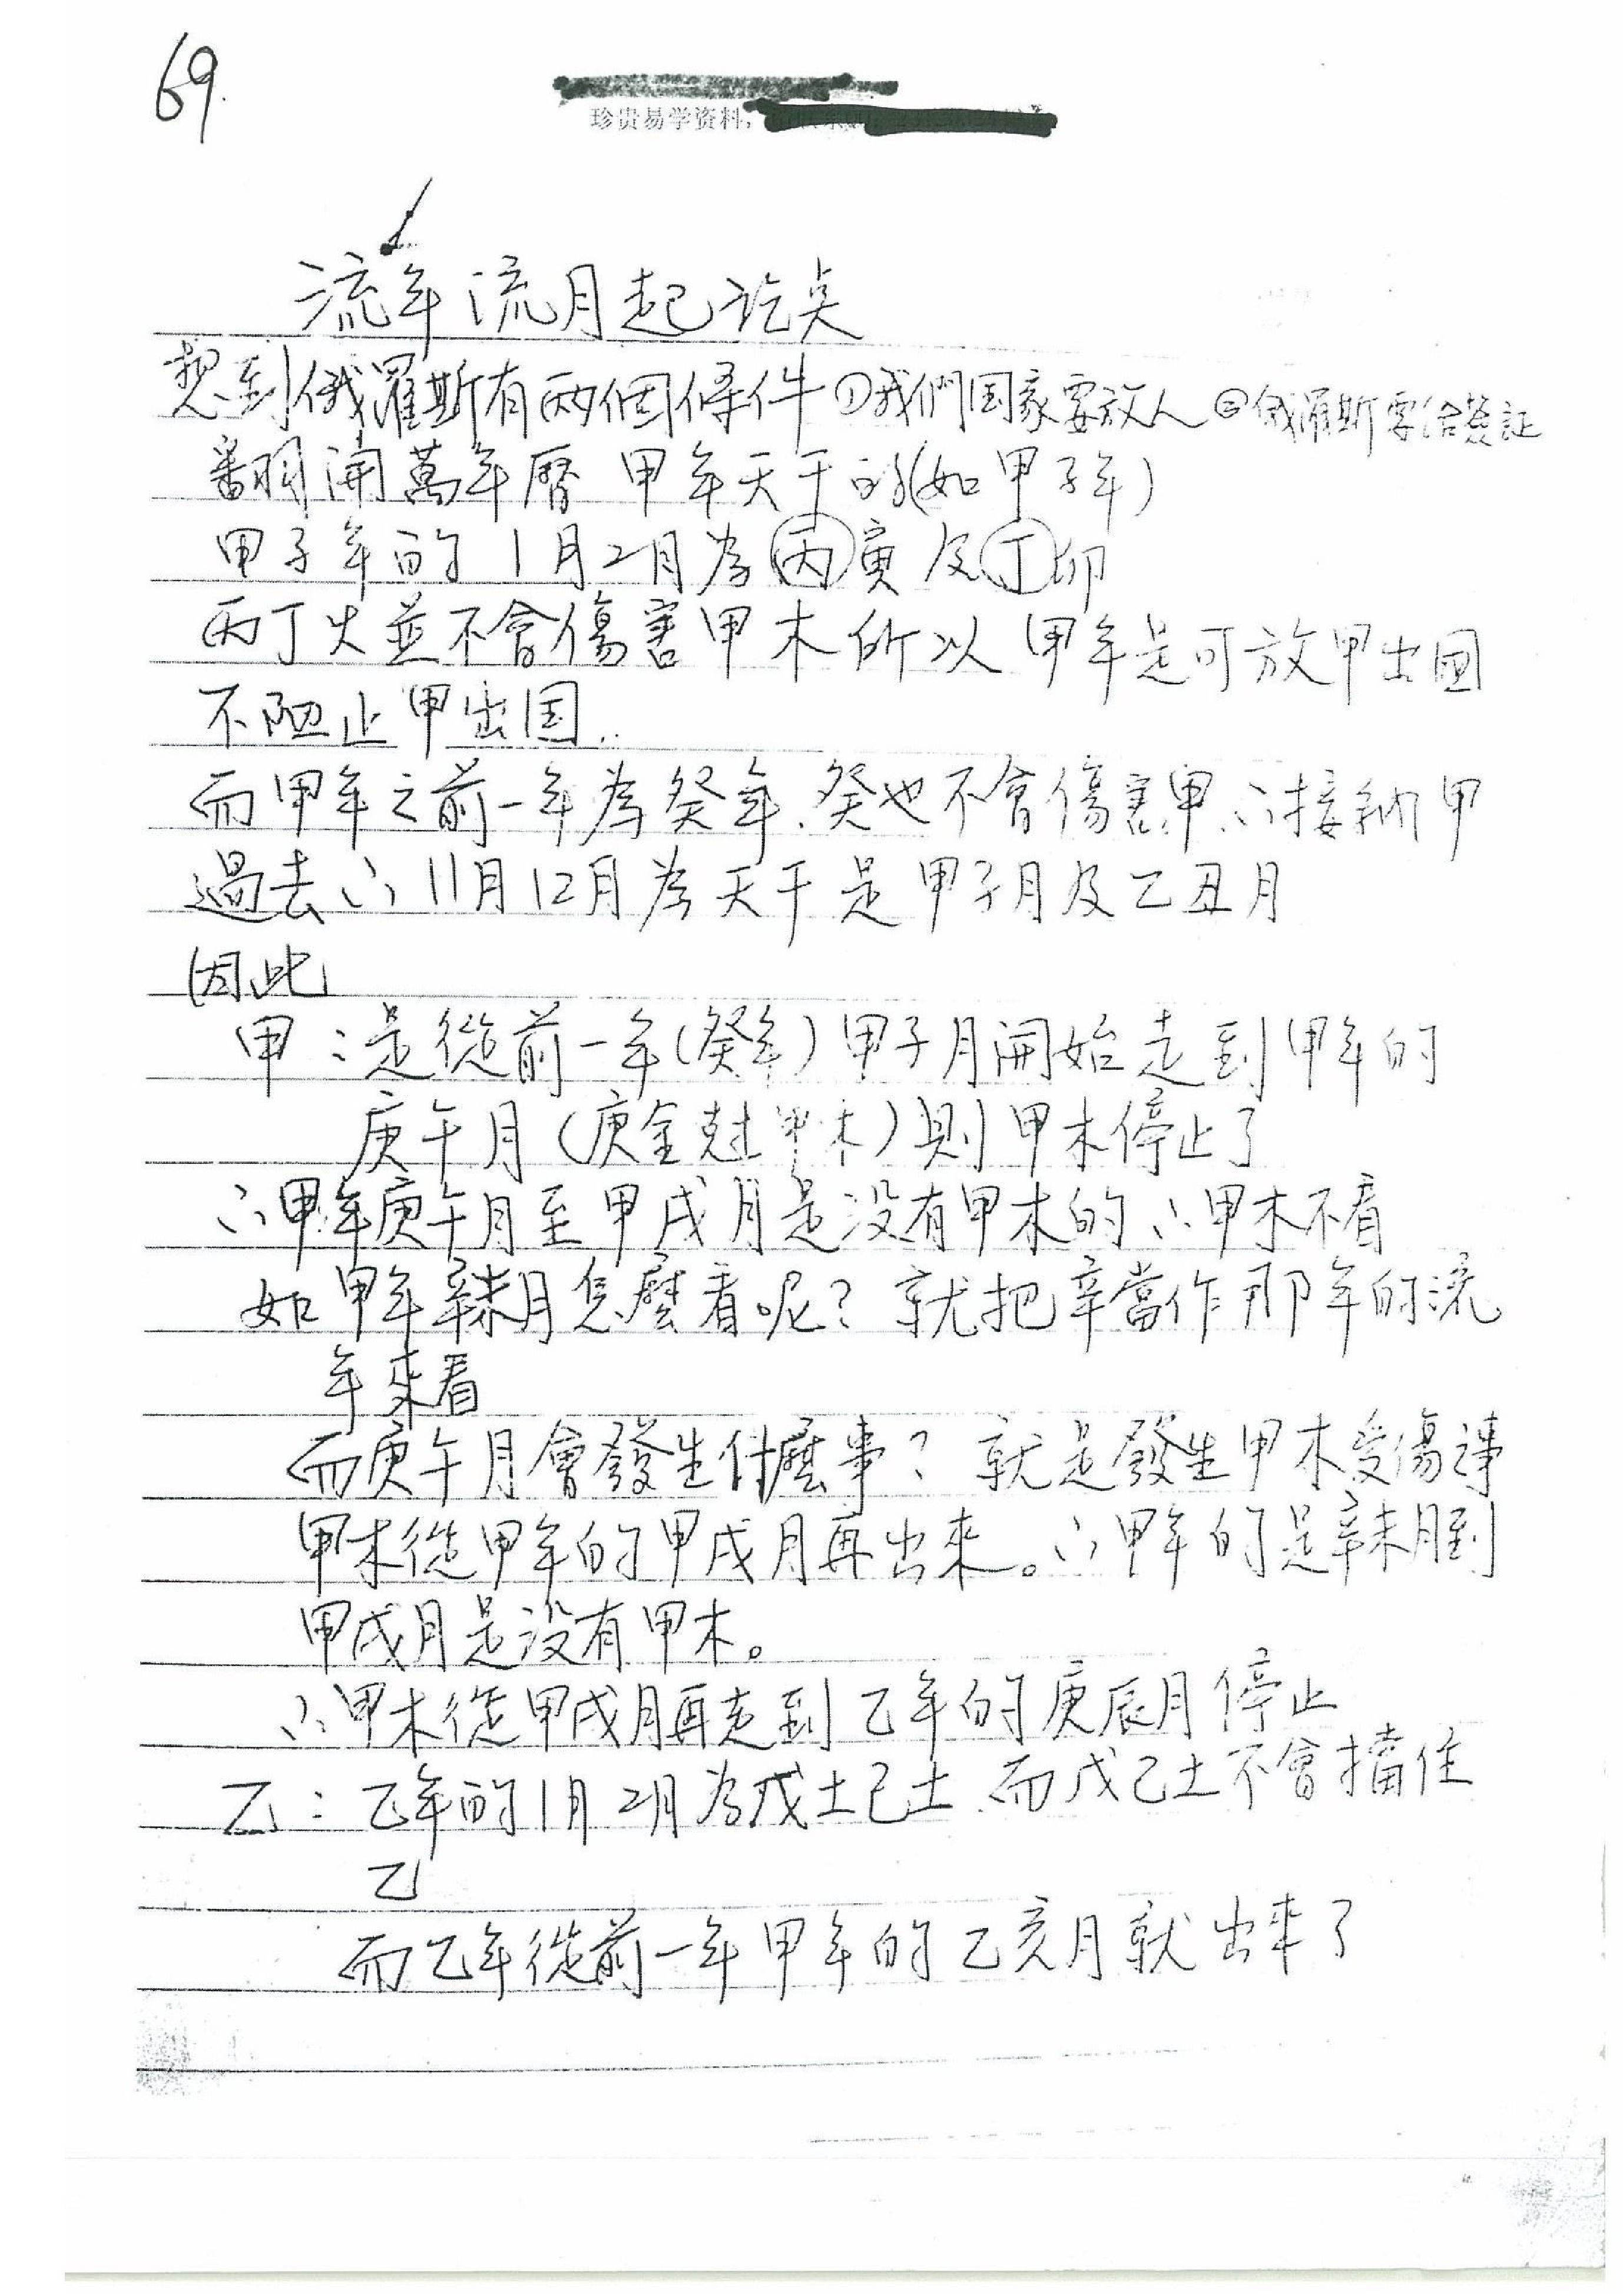 69.
珍贵易学资料，
流年流月起訖点
想到俄羅斯有兩個條件①我們国家要放人②俄羅斯要給簽証
翻開萬年曆 甲年天干的(如甲子年)
甲子年的1月2月為丙寅及丁卯
丙丁火並不會傷害甲木所以甲年是可放甲出国
不阻止甲出国.
而甲年之前一年為癸年.癸也不會傷害甲∴接納甲
過去∴11月12月為天干是甲子月及乙丑月
因此
甲:是從前一年(癸年)甲子月開始走到甲年的
庚午月(庚金尅甲木)則甲木停止了
∴甲年庚午月至甲戌月是没有甲木的∴甲木不看
如甲年辛未月怎麼看呢?就把辛當作那年的流
年來看
而庚午月會發生什麼事?就是發生甲木受傷事
甲木從甲年的甲戌月再出來。∴甲年的是辛未月到
甲戌月是没有甲木。
∴甲木從甲戌月再走到乙年的庚辰月停止
乙:乙年的1月2月為戊土己土 而戊己土不會擋住
乙
而乙年從前一年甲年的乙亥月就出來了